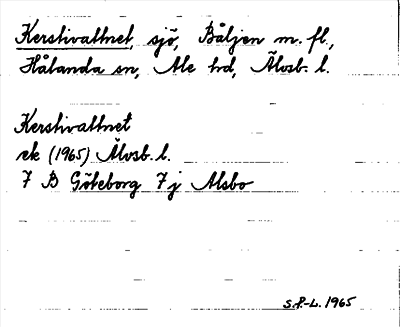 Kerstivattnet, sjö, Båljen m. fl.,
Hålanda sn, Ale hd, Älvsb. l.
Kerstivattnet
ek (1965) Älvsb. l.
7 B Göteborg 7j Alsbo
S.P.-L. 1965